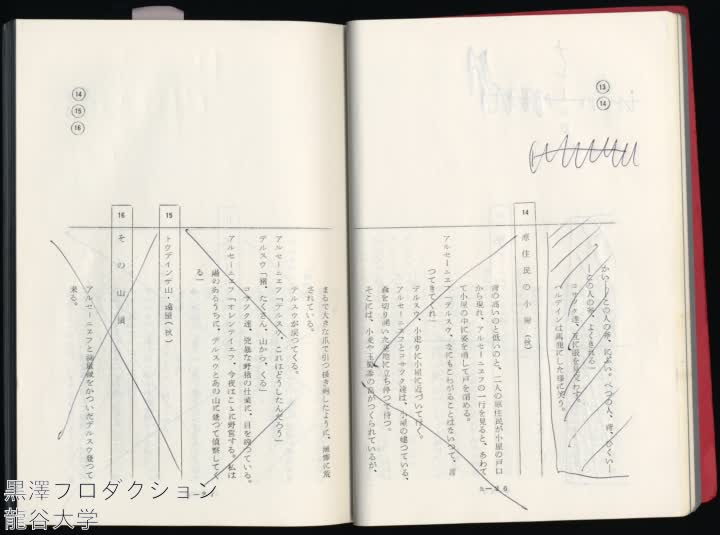 ⑬
⑭
かい！この人の骨、にぶい。べつの人、骨、ひくい―
―この人の骨、よくきれる」
コサック達、互に顔を見交わす。
バルデインは馬鹿にした様に笑う。
14
原住民の小屋（秋）
背の高いのと低いのと、二人の原住民が小屋の戸口
から現れ、アルセーニエフの一行を見ると、あわて
て小屋の中に姿を消して戸を閉める。
アルセーニエフ「デルスウ、なにもこわがることはないって、言
ってきてくれ」
デルスウ、小走りに小屋に近づいてはく。
アルセーニエフとコサック達は、小屋の建っている、
森を切り開いた空地に立ち停って待つ。
そこには、小麦や玉蜀黍の畠がつくられているが、
⑭
⑮
⑯
まるで大きな爪で引っ掻き廻したように、無惨に荒
されている。
デルスウが戻ってくる。
アルセーニエフ「デルスウ、これはどうしたんだろう」
デルスウ「猪、たくさん、山から、くる」
コサック達、兇暴な野猪の仕業に、目を瞠っている。
アルセーニエフ「オレンテイエフ、今夜はこゝに野営する。私は
陽のあるうちに、デルスウとあの山に登って偵察してく
る」
15
トウデインザ山・遠望（秋）
16
その山頂
アルセーニエフと
をかついだデルスウ登って
来る。
黒澤プロダクション
龍谷大学